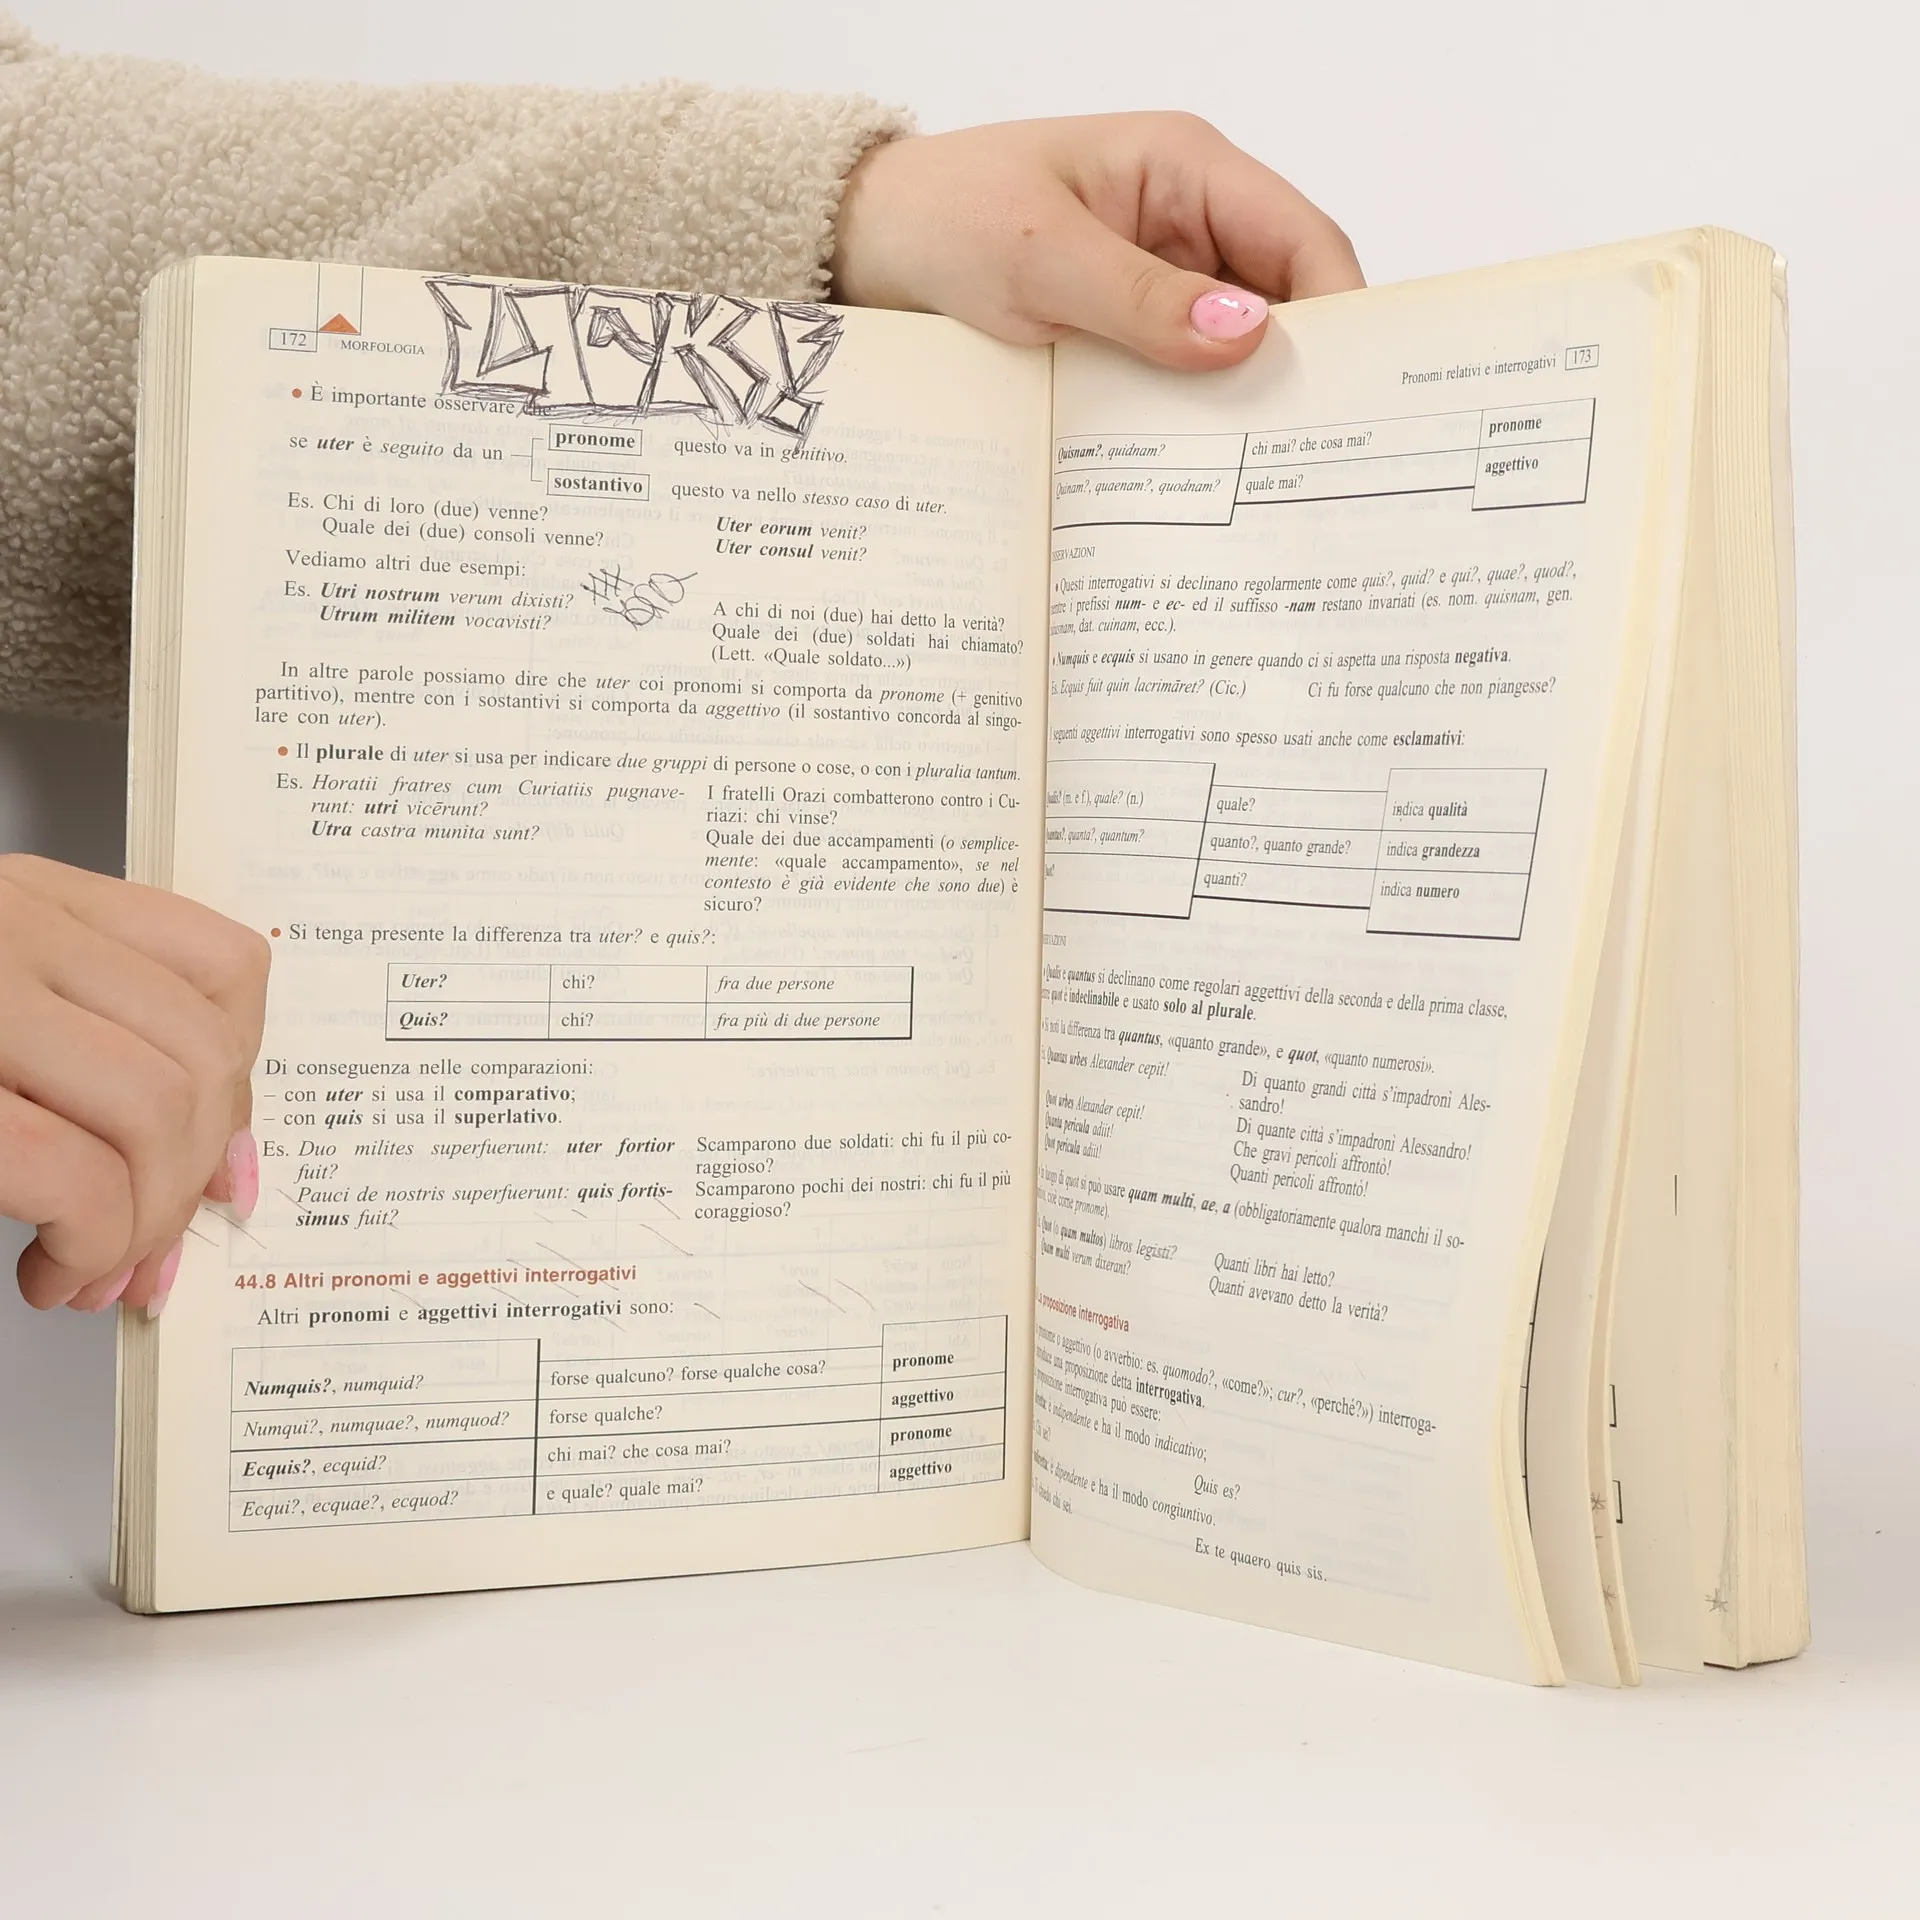 172
MORFOLOGIA
• È importante osservare che:
se uter è seguito da un
pronome
questo va in genitivo.
sostantivo
questo va nello stesso caso di uter.
Es. Chi di loro (due) venne?
Uter eorum venit?
Quale dei (due) consoli venne?
Uter consul venit?
Vediamo altri due esempi:
Es. Utri nostrum verum dixisti?
A chi di noi (due) hai detto la verità?
Utrum militem vocavisti?
Quale dei (due) soldati hai chiamato?
(Lett. «Quale soldato...»)
In altre parole possiamo dire che uter coi pronomi si comporta da pronome (+ genitivo
partitivo), mentre con i sostantivi si comporta da aggettivo (il sostantivo concorda al singo-
lare con uter).
• Il plurale di uter si usa per indicare due gruppi di persone o cose, o con i pluralia tantum.
Es. Horatii fratres cum Curiatiis pugnave-
runt: utri vicērunt?
I fratelli Orazi combatterono contro i Cu-
riazi: chi vinse?
Utra castra munita sunt?
Quale dei due accampamenti (o semplice-
mente: «quale accampamento», se nel
contesto è già evidente che sono due) è
sicuro?
• Si tenga presente la differenza tra uter? e quis?:
Uter? chi? fra due persone
Quis? chi? fra più di due persone
Di conseguenza nelle comparazioni:
– con uter si usa il comparativo;
– con quis si usa il superlativo.
Es. Duo milites superfuerunt: uter fortior
fuit?
Scamparono due soldati: chi fu il più co-
raggioso?
Pauci de nostris superfuerunt: quis fortis-
simus fuit?
Scamparono pochi dei nostri: chi fu il più
coraggioso?
44.8 Altri pronomi e aggettivi interrogativi
Altri pronomi e aggettivi interrogativi sono:
Numquis?, numquid? forse qualcuno? forse qualche cosa? pronome
Numqui?, numquae?, numquod? forse qualche? aggettivo
Ecquis?, ecquid? chi mai? che cosa mai? pronome
Ecqui?, ecquae?, ecquod? e quale? quale mai? aggettivo
Pronomi relativi e interrogativi 173
Quisnam?, quidnam? chi mai? che cosa mai? pronome
Quinam?, quaenam?, quodnam? quale mai? aggettivo
• Questi interrogativi si declinano regolarmente come quis?, quid? e qui?, quae?, quod?,
i prefissi num- e ec- ed il suffisso -nam restano invariati (es. nom. quisnam, gen.
dat. cuinam, ecc.).
• Numquis e ecquis si usano in genere quando ci si aspetta una risposta negativa.
Es. Ecquis fuit quin lacrimāret? (Cic.)
Ci fu forse qualcuno che non piangesse?
seguenti aggettivi interrogativi sono spesso usati anche come esclamativi:
(m. e f.), quale? (n.) quale? indica qualità
quanta?, quantum? quanto?, quanto grande? indica grandezza
quanti? indica numero
• Qualis e quantus si declinano come regolari aggettivi della seconda e della prima classe,
quot è indeclinabile e usato solo al plurale.
• Si noti la differenza tra quantus, «quanto grande», e quot, «quanto numerosi».
Quantas urbes Alexander cepit!
Di quanto grandi città s'impadronì Ales-
sandro!
Quot urbes Alexander cepit!
Di quante città s'impadronì Alessandro!
Quanta pericula adiit!
Che gravi pericoli affrontò!
Quot pericula adiit!
Quanti pericoli affrontò!
luogo di quot si può usare quam multi, ae, a (obbligatoriamente qualora manchi il so-
cioè come pronome).
Quot (o quam multos) libros legisti?
Quanti libri hai letto?
Quam multi verum dixerant?
Quanti avevano detto la verità?
proposizione interrogativa
pronome o aggettivo (o avverbio: es. quomodo?, «come?»; cur?, «perché?») interroga-
una proposizione detta interrogativa.
proposizione interrogativa può essere:
è indipendente e ha il modo indicativo;
Chi sei?
Quis es?
è dipendente e ha il modo congiuntivo.
chiedo chi sei.
Ex te quaero quis sis.